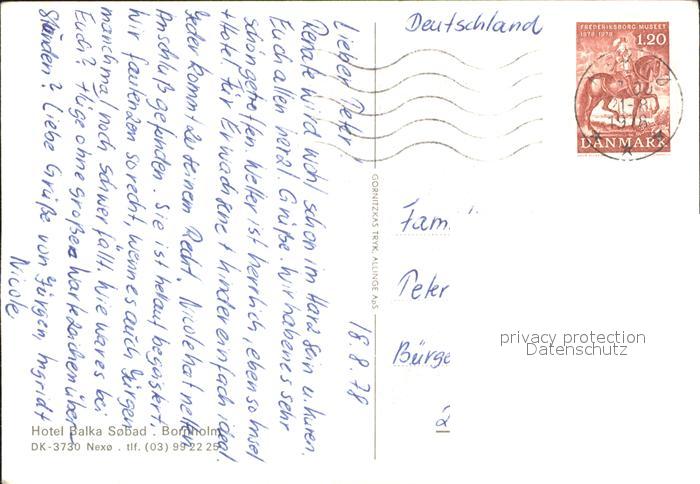 Deutschland
FREDERIKSBORG MUSEET
1878 1978
1.20
DANMARK
Lieber Peter!
Renate wird wohl schon im Harz sein u. kuren.
Euch allen herzl. Grüße. Wir haben es sehr
schön getroffen. Wetter ist herrlich, ebenso Insel
+ Hotel für Erwachsene + Kinder einfach ideal.
Jeder kommt zu seinem Recht. Nicole hat netten
Anschluß gefunden. Sie ist hellauf begeistert.
Wir faulenzen so recht, wenn es auch Jürgen
manchmal noch schwer fällt. Wie war es bei
Euch? Flüge ohne große Wartezeichen über
Stunden? Liebe Grüße von Jürgen, Ingridt
Nicole
18.8.78
GORNITZKAS TRYK, ALLINGE ApS
Fam.
Peter
Bürge
privacy protection
Datenschutz
Hotel Balka Søbad . Bornholm
DK-3730 Nexø . tlf. (03) 99 22 25